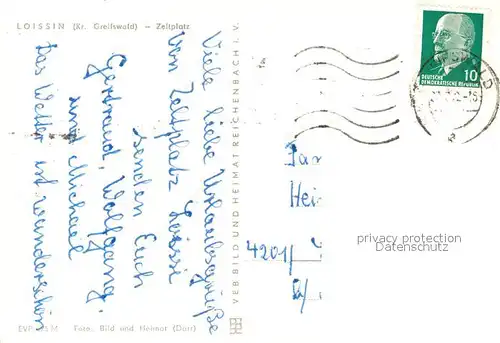 LOISSIN (Kr. Greifswald) — Zeltplatz
Viele liebe Urlaubsgrüße
vom Zeltplatz Loissin
senden Euch
Gertraud, Wolfgang,
und Michael
Das Wetter ist wunderschön
VEB BILD UND HEIMAT REICHENBACH I. V.
10
DEUTSCHE
DEMOKRATISCHE REPUBLIK
Hei
4201/
privacy protection
Datenschutz
Foto, Bild und Heimat (Darr)